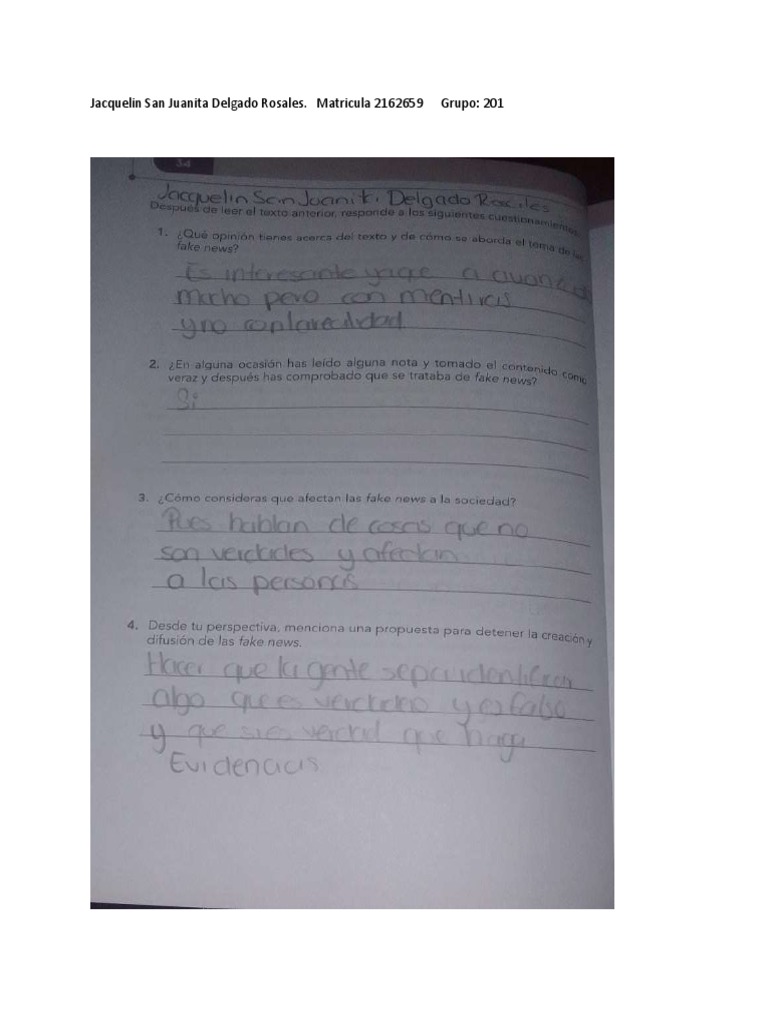 Jacquelin San Juanita Delgado Rosales.   Matricula 2162659      Grupo: 201
34
Jacquelin San Juanita Delgado Rosales
Después de leer el texto anterior, responde a los siguientes cuestionamientos.
1. ¿Qué opinión tienes acerca del texto y de cómo se aborda el tema de las
fake news?
Es interesante ya que a
mucho pero con mentiras
y no con la realidad
2. ¿En alguna ocasión has leído alguna nota y tomado el contenido como
veraz y después has comprobado que se trataba de fake news?
Si
3. ¿Cómo consideras que afectan las fake news a la sociedad?
Pues hablan de cosas que no
son verdades y afectan
a las personas
4. Desde tu perspectiva, menciona una propuesta para detener la creación y
difusión de las fake news.
Hacer que la gente sepa identificar
algo que es verdadero y es falso
y que si es verdad que haga
Evidencias